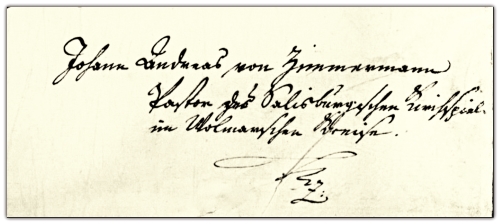 Johann Andreas von Zimmermann
Pastor des Salisburgschen Kirchspiel-
im Wolmarschen Kreise.